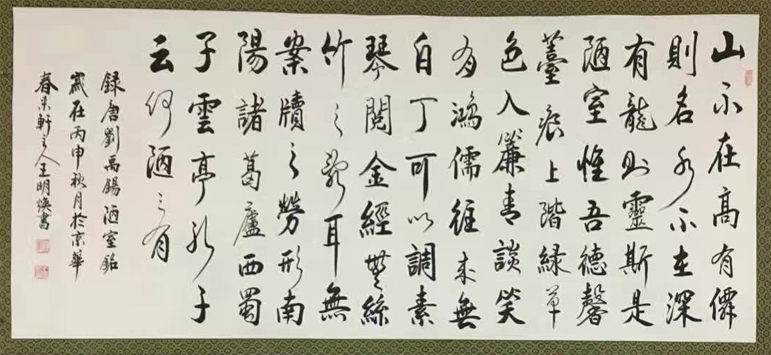 山不在高有僊
則名水不在深
有龍則靈斯是
陋室惟吾德馨
薹痕上階緑草
色入簾青談笑
有鴻儒往來無
白丁可以調素
琴閲金經無絲
竹之亂耳無
案牘之勞形南
陽諸葛廬西蜀
子雲亭孔子
云何陋之有
録唐劉禹錫陋室銘
歲在丙申秋月於京華
春軒主人王明煥書